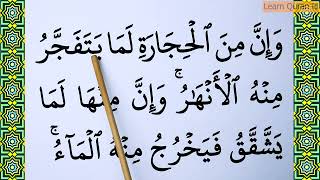 Learn Quran
وَإِنَّ مِنَ ٱلْحِجَارَةِ لَمَا يَتَفَجَّرُ
مِنْهُ ٱلْأَنْهَٰرُ ۚ وَإِنَّ مِنْهَا لَمَا
يَشَّقَّقُ فَيَخْرُجُ مِنْهُ ٱلْمَآءُ ۚ